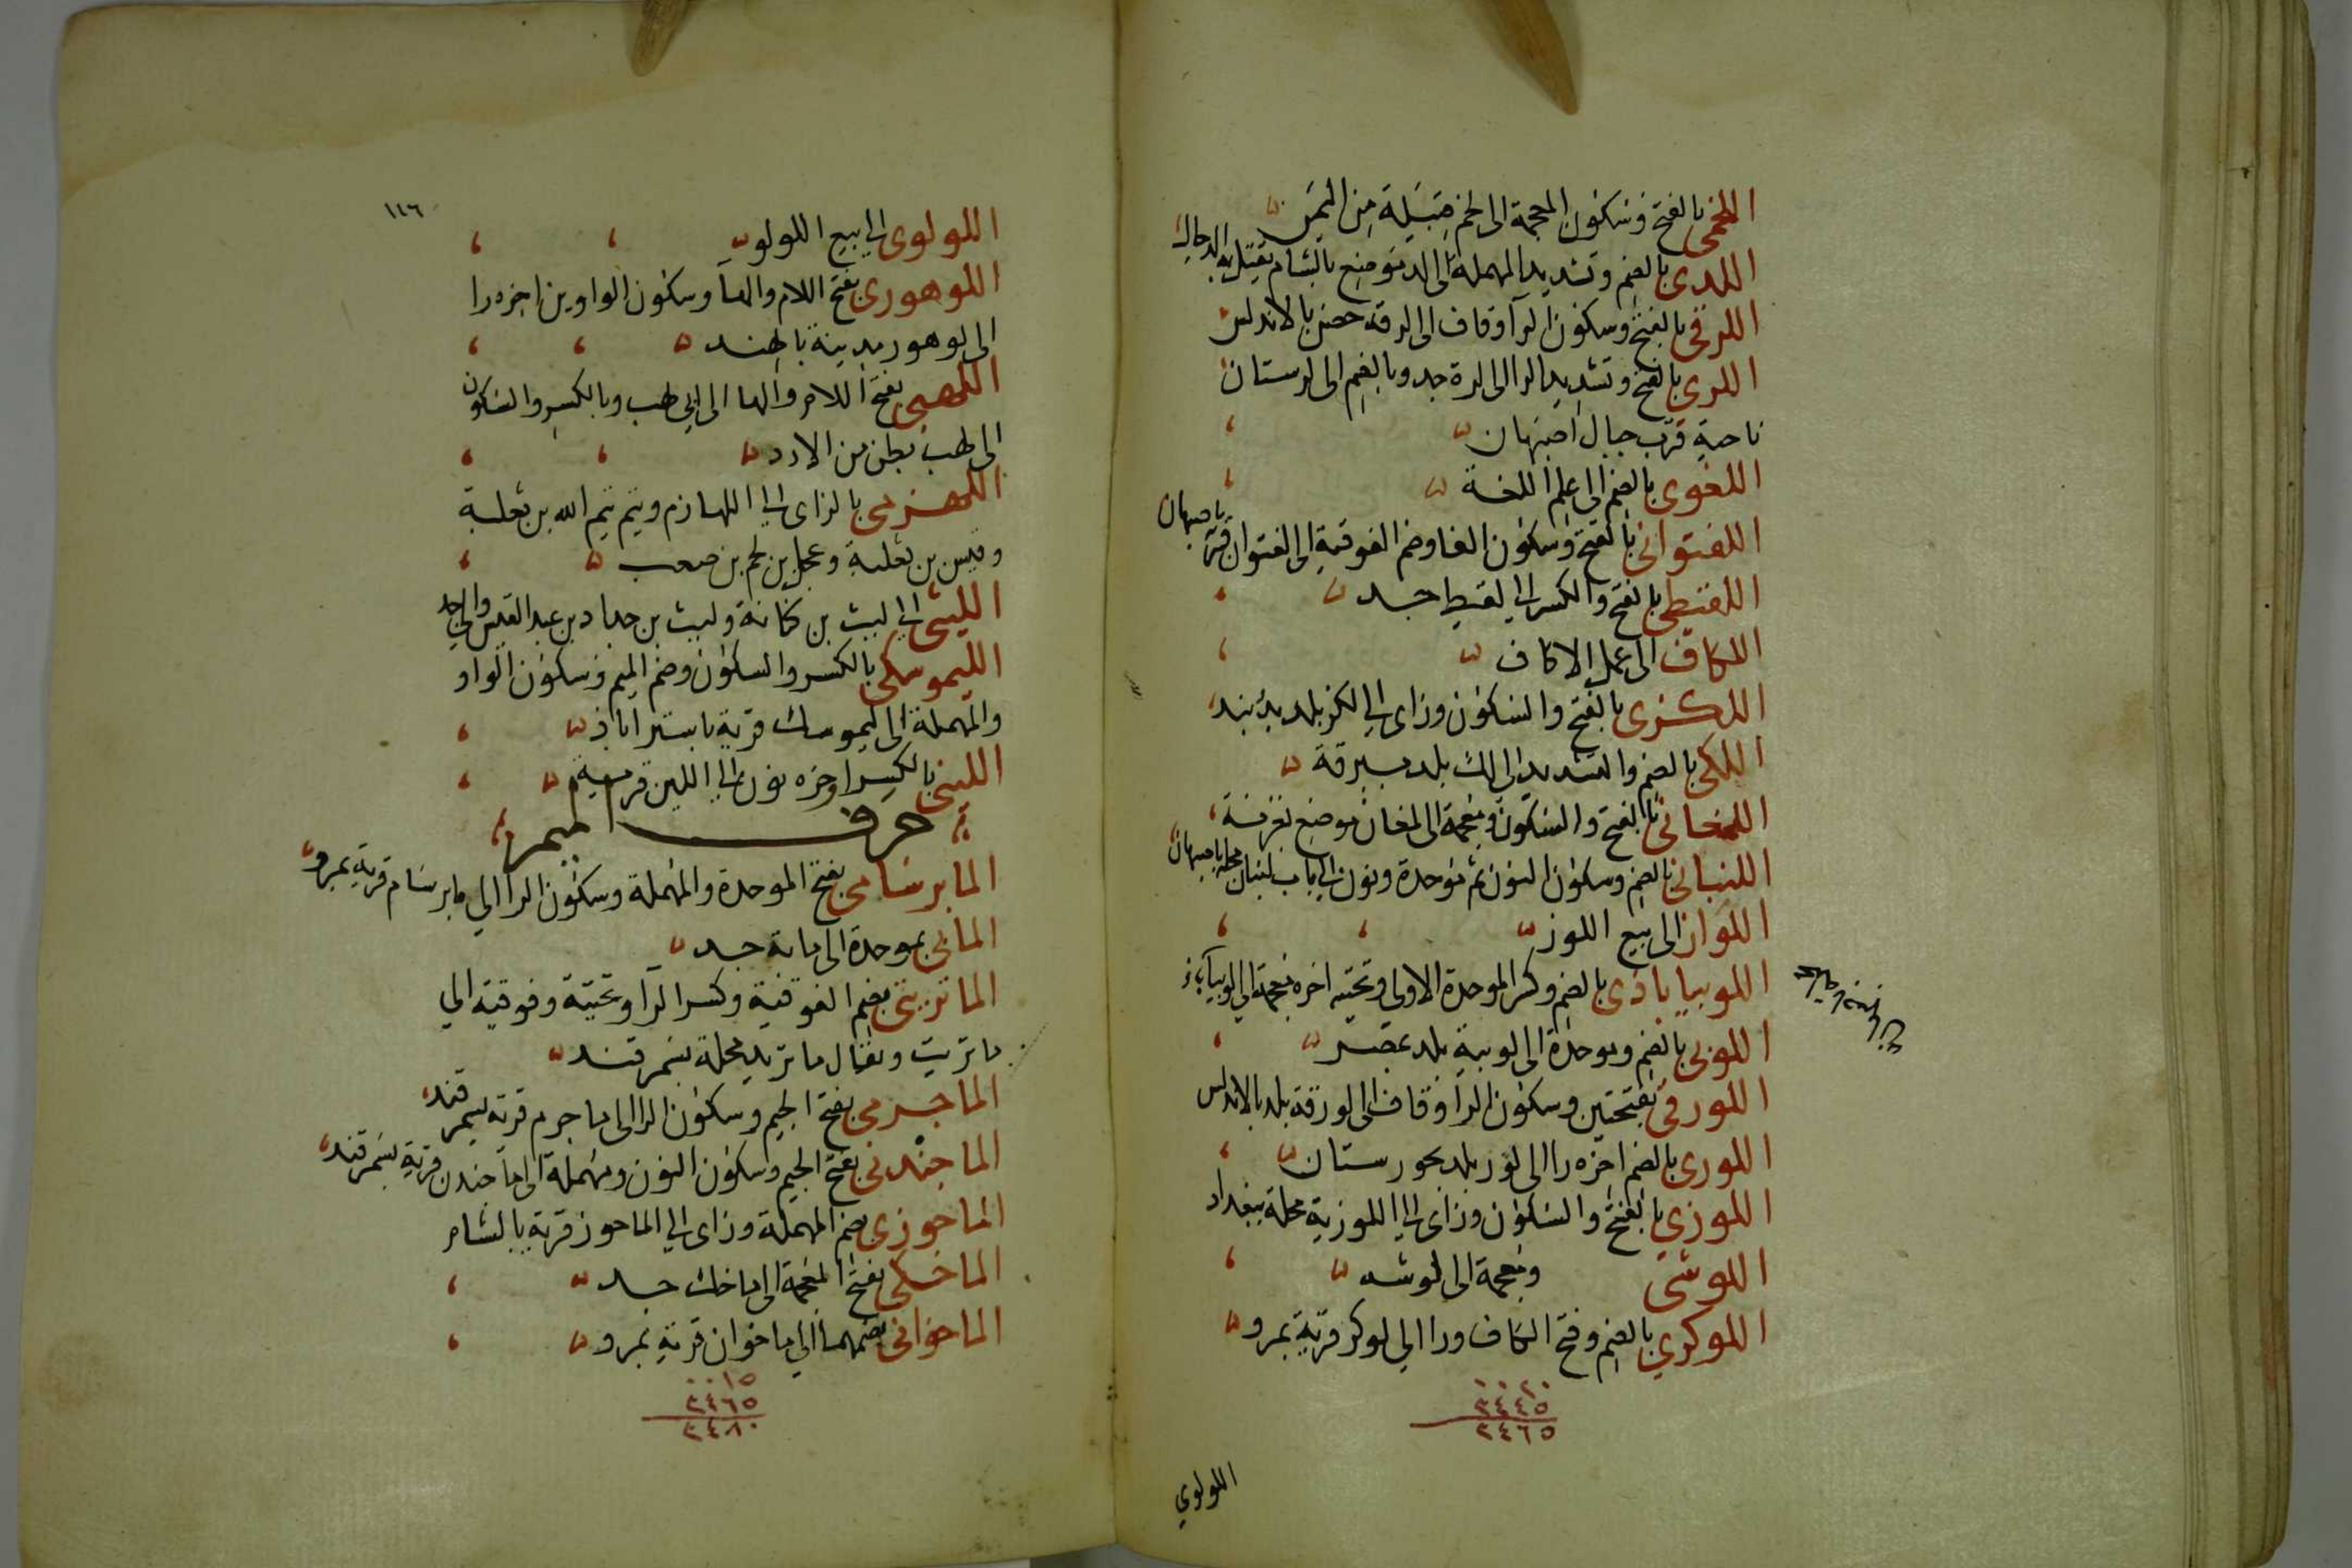 اللخمى بالفتح وسكون المعجمة الى لخم قبيلة من اليمن
اللدى بالضم وتشديد المهملة الى لد موضع بالشام يقتل به الدجال
اللرقى بالفتح وسكون الرآ وقاف الى لرقة حصن بالاندلس
اللرى بالفتح وتشديد الرا الى لرة جد وبالضم الى لرستان
ناحية قرب جبال اصبهان
اللغوى بالضم الى علم اللغة
اللفتوانى بالفتح وسكون الفا وضم الفوقية الى لفتوان قرية باصبهان
اللقيطى بالفتح والكسر الى لقيط جد
اللكاف الى عمل الاكاف
اللكزى بالفتح والسكون وزاى الى لكز بلد بدربند
اللكى بالضم والتشديد الى لك بلد ببرقة
اللمغانى بالفتح والسكون ومعجمة الى لمغان موضع بغزنة
اللنبانى بالضم وسكون النون ثم موحدة ونون الى باب لنبان محلة باصبهان
اللواز الى بيع اللوز
اللوبياباذى بالضم وكسر الموحدة الاولى وتحتية اخره معجمة الى لوبياباذ
اللوبى بالضم وموحدة الى لوبية بلد بمصر
اللورقى بفتحتين وسكون الرآ وقاف الى لورقة بلد بالاندلس
اللورى بالضم اخره را الى لور بلد بخورستان
اللوزي بالفتح والسكون وزاى الى اللوزية محلة ببغداد
اللوشى ومعجمة الى لوشه
اللوكري بالضم وفتح الكاف ورا الى لوكر قرية بمرو
٠٠٢٠
٣٤٤٥
٣٤٦٥
اللولوي
١٤٦
اللولوى الى بيع اللولو
اللوهورى بفتح اللام والهآ وسكون الواوين اخره را
الى لوهور مدينة بالهند
اللهبى بفتح اللام والها الى ابى لهب وبالكسر والسكون
الى لهب بطن من الازد
اللهزمى بالزاى الى اللهازم وتيم تيم الله بن ثعلبة
وقيس بن ثعلبة وعجل بن لجم بن صعب
الليثى الى ليث بن كنانة وليث بن حداد بن عبد القيس والى جد
الليموسكى بالكسر والسكون وضم الميم وسكون الواو
والمهملة الى ليموسك قرية باستراباذ
اللينى بالكسر اخره نون الى اللين قرية
حرف الميم
المابرسامى بفتح الموحدة والمهملة وسكون الرا الى مابرسام قرية بمرو
المابى بموحدة الى مابة جد
الماتريتى بضم الفوقية وكسر الرآ وتحتية وفوقية الى
ماتريت ويقال ماتريد محلة بسمرقند
الماجرمى بفتح الجيم وسكون الرا الى ماجرم قرية بسمرقند
الماجندنى بفتح الجيم وسكون النون ومهملة الى ماجندن قرية بسمرقند
الماحوزى بضم المهملة وزاى الى الماحوز قرية بالشام
الماخكى بفتح المعجمة الى ماخك جد
الماخوانى بضمهما الى ماخوان قرية بمرو
٠٠١٥
٣٤٦٥
٣٤٨٠